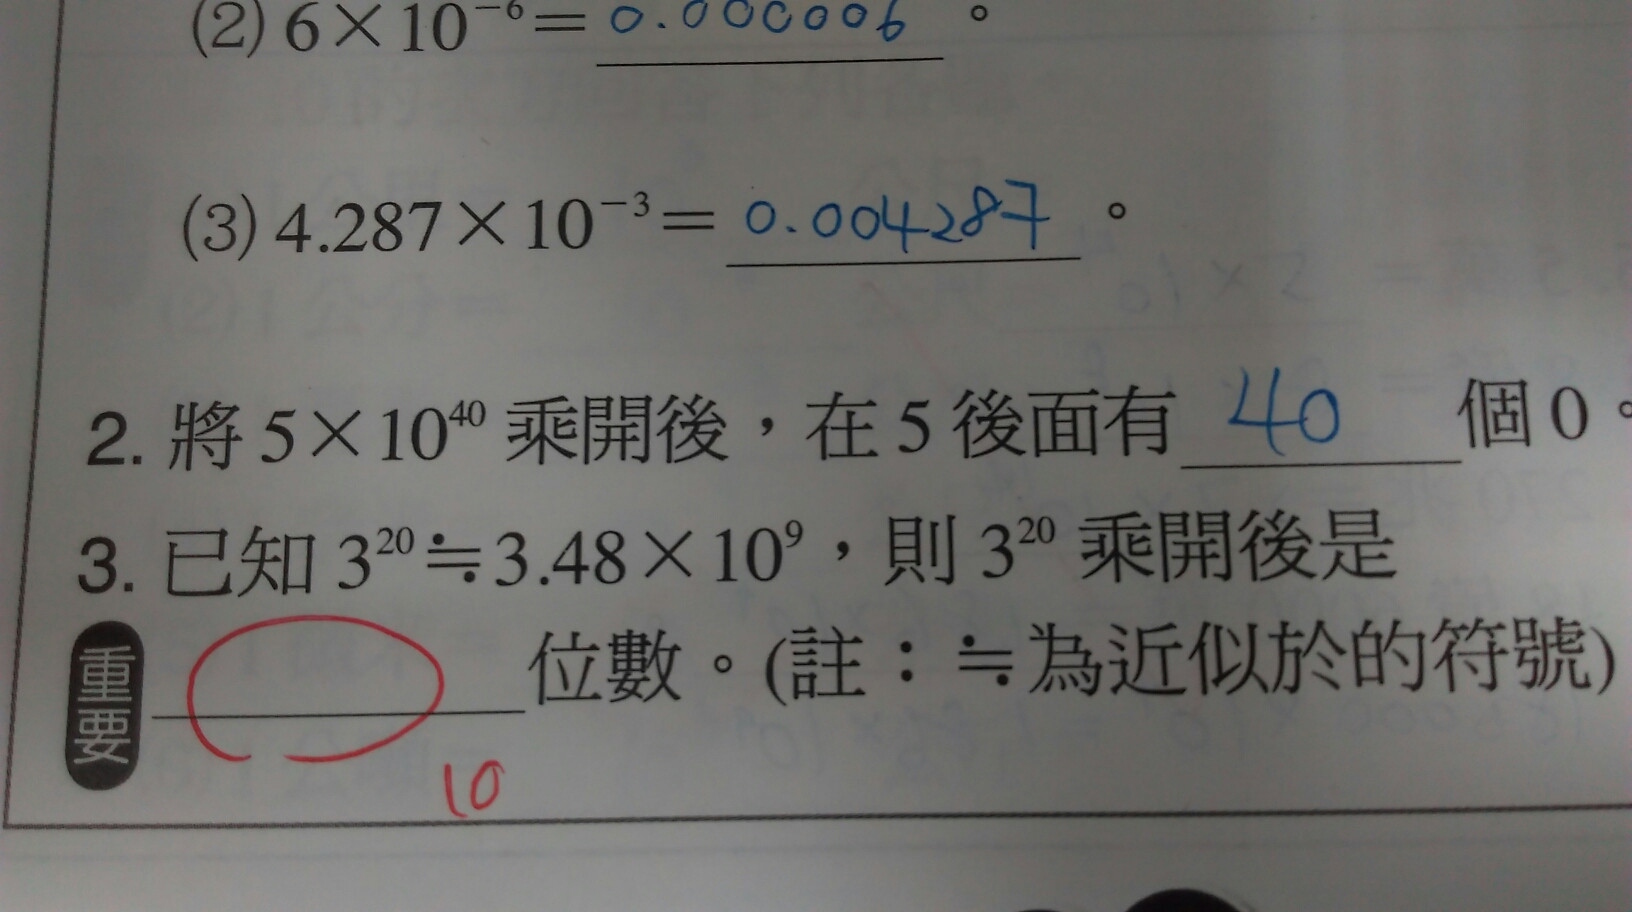 (2) 6×10⁻⁶= 0.000006 。
(3) 4.287×10⁻³= 0.004287 。
2. 將 5×10⁴⁰ 乘開後，在 5 後面有 40 個 0。
3. 已知 3²⁰≒3.48×10⁹，則 3²⁰ 乘開後是
重要 位數。(註：≒為近似於的符號)
10